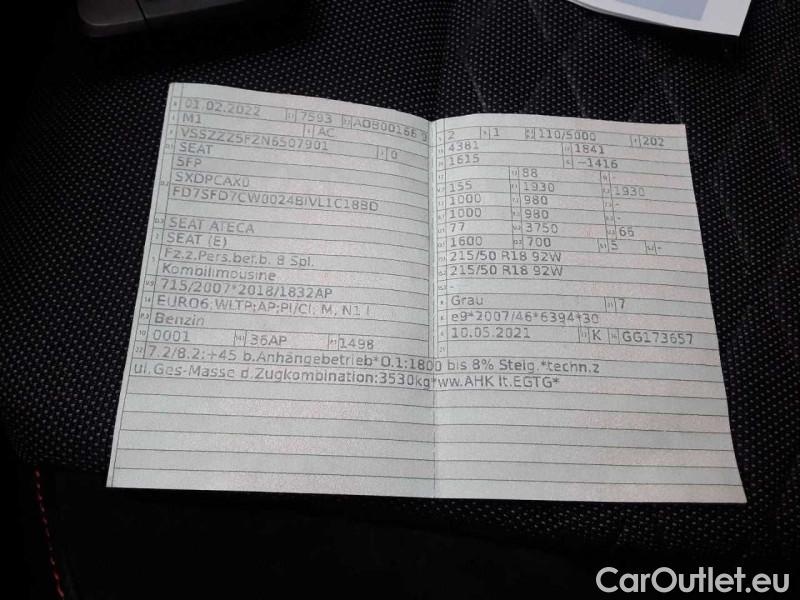 01.02.2022 7593 AOB00166 9
M1 AC
VSSZZZ5FZN6507901
SEAT 0
5FP
SXDPCAX0
FD7SFD7CW0024BIVL1C18BD
SEAT ATECA
SEAT (E)
Fz.z.Pers.bef.b. 8 Spl.
Kombilimousine
715/2007*2018/1832AP
EURO6;WLTP;AP;PI/CI; M, N1 I
Benzin
0001 36AP 1498
7.2/8.2:+45 b.Anhängebetrieb*O.1:1800 bis 8% Steig.*techn.z
ul.Ges-Masse d.Zugkombination:3530kg*ww.AHK lt.EGTG*
2 1 110/5000 202
4381 1841
1615 -1416
88 -
155 1930 1930
1000 980 -
1000 980 -
77 3750 66
1600 700 5 -
215/50 R18 92W
215/50 R18 92W
-
Grau 7
e9*2007/46*6394*30
10.05.2021 K GG173657
CarOutlet.eu